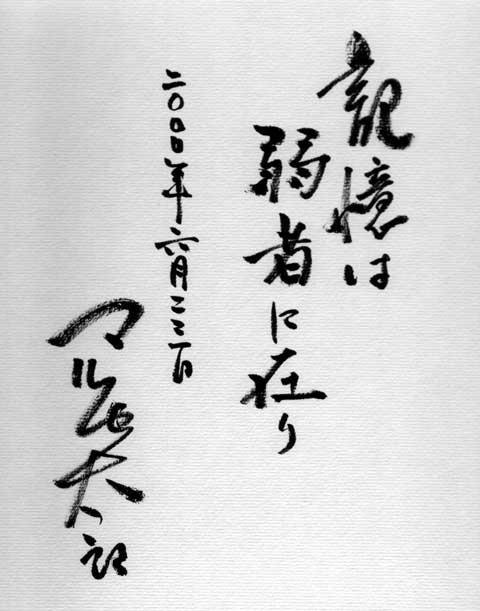 記憶は
弱者に在り
二〇〇〇年六月二二日
マルセ太郎